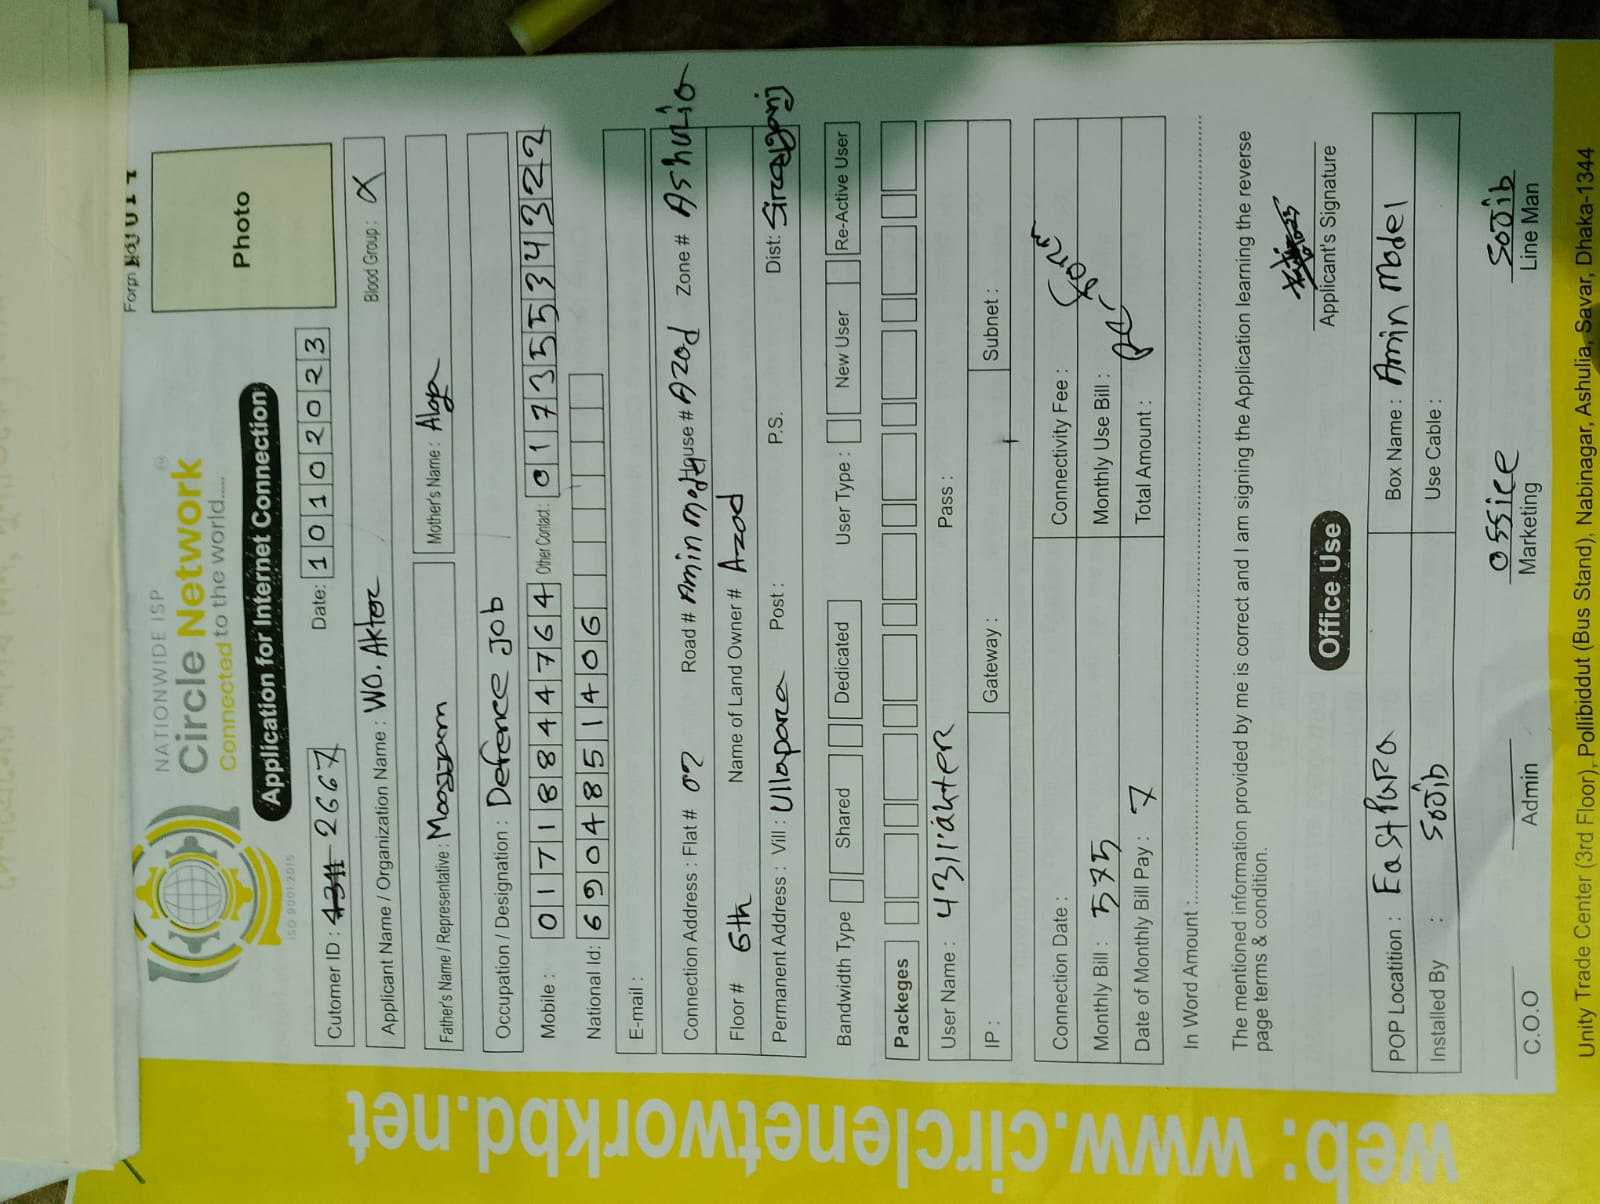 NATIONWIDE ISP
Circle Network
Connected to the world.....
ISO 9001:2015
Application for Internet Connection
Photo
Cutomer ID : 2667 Date: 10102023
Applicant Name / Organization Name : WO. Aktor Blood Group :
Father's Name / Representative : Moazzam Mother's Name :
Occupation / Designation : Defence Job
Mobile : 01718844764 Other Contact: 01735534322
National Id: 6904851406
E-mail :
Connection Address : Flat # 02 Road # Amin House # Azad Zone # Ashulia
Floor # 6th Name of Land Owner # Azad
Permanent Address : Vill : Ullapara Post : P.S. Dist:
Bandwidth Type Shared Dedicated User Type : New User Re-Active User
Packeges
User Name : Pass :
IP : Gateway : Subnet :
Connection Date : Connectivity Fee :
Monthly Bill : 575 Monthly Use Bill :
Date of Monthly Bill Pay : 7 Total Amount :
In Word Amount :
The mentioned information provided by me is correct and I am signing the Application learning the reverse
page terms & condition.
Applicant's Signature
Office Use
POP Locatition : East Para Box Name : Amin Model
Installed By : Sojib Use Cable :
office Sojib
C.O.O Admin Marketing Line Man
Unity Trade Center (3rd Floor), Pollibiddut (Bus Stand), Nabinagar, Ashulia, Savar, Dhaka-1344
web: www.circlenetworkbd.net